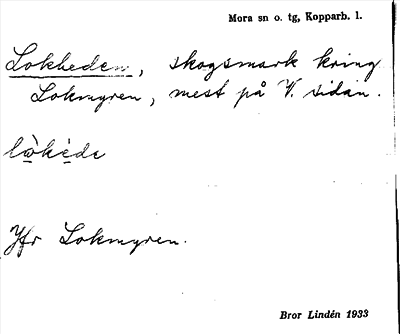 Mora sn o. tg, Kopparb. l.
Lokheden, skogsmark kring
Lokmyren, mest på V. sidan.
Jfr Lokmyren.
Bror Lindén 1933